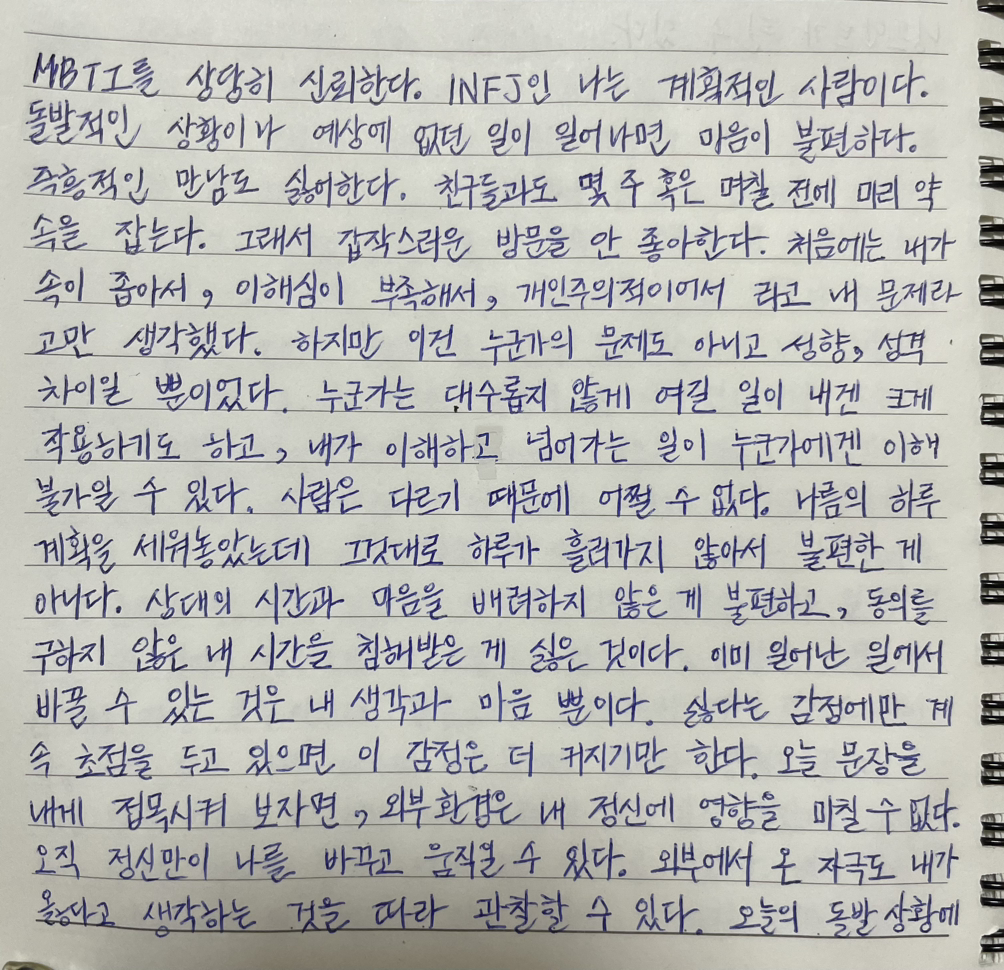 MBTI를 상당히 신뢰한다. INFJ인 나는 계획적인 사람이다.
돌발적인 상황이나 예상에 없던 일이 일어나면 마음이 불편하다.
즉흥적인 만남도 싫어한다. 친구들과도 몇 주 혹은 며칠 전에 미리 약
속을 잡는다. 그래서 갑작스러운 방문을 안 좋아한다. 처음에는 내가
속이 좁아서, 이해심이 부족해서, 개인주의적이어서 라고 내 문제라
고만 생각했다. 하지만 이건 누군가의 문제도 아니고 성향, 성격
차이일 뿐이었다. 누군가는 대수롭지 않게 여길 일이 내겐 크게
작용하기도 하고, 내가 이해하고 넘어가는 일이 누군가에겐 이해
불가일 수 있다. 사람은 다르기 때문에 어쩔 수 없다. 나름의 하루
계획을 세워놓았는데 그것대로 하루가 흘러가지 않아서 불편한 게
아니다. 상대의 시간과 마음을 배려하지 않은 게 불편하고, 동의를
구하지 않은 내 시간을 침해받은 게 싫은 것이다. 이미 일어난 일에서
바꿀 수 있는 것은 내 생각과 마음 뿐이다. 싫다는 감정에만 계
속 초점을 두고 있으면 이 감정은 더 커지기만 한다. 오늘 문장을
내게 접목시켜 보자면, 외부환경은 내 정신에 영향을 미칠 수 없다.
오직 정신만이 나를 바꾸고 움직일 수 있다. 외부에서 온 자극도 내가
옳다고 생각하는 것을 따라 관찰할 수 있다. 오늘의 돌발상황에